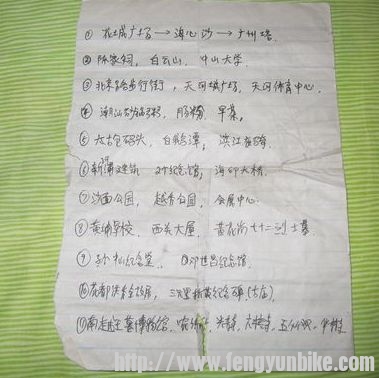 ① 花城广场→海心沙→广州塔
② 陈家祠, 白云山, 中山大学
③ 北京路步行街, 天河城广场, 天河体育中心
④ 肠粉, 早茶,
⑤ 码头, 白鹅潭, 滨江
⑥ 纪念馆, 海印大桥
⑦ 沙面公园, 越秀公园, 会展中心
⑧ 黄埔军校, 西关大屋, 黄花岗七十二烈士墓
⑨ 孙中山纪念堂, 邓世昌纪念馆
⑩ 三元里抗英纪念
⑪ 南越王墓博物馆, 光孝寺, 六榕寺, 五仙观,
http://www.fengyunbike.com/